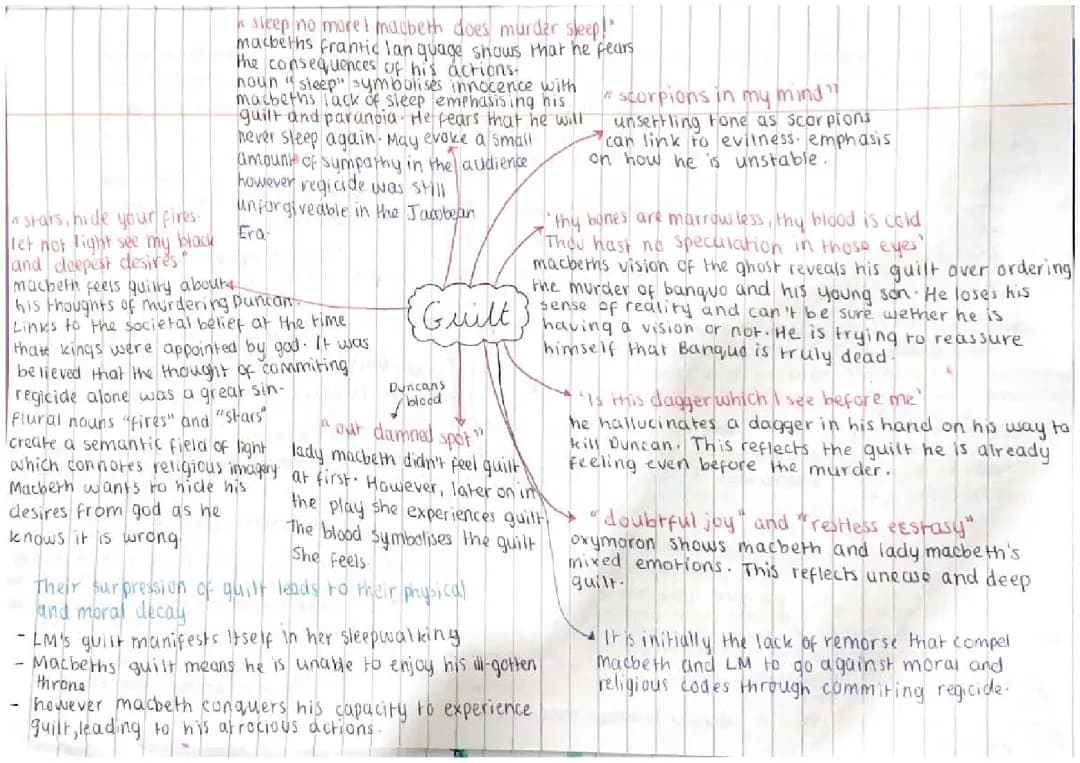 "sleep no more! macbeth does murder sleep!"
macbeths frantic language shows that he fears
the consequences of his actions.
noun "sleep" symbolises innocence with
macbeths lack of sleep emphasising his
guilt and paranoia. He fears that he will
never sleep again. May evoke a small
amount of sympathy in the audience
however regicide was still
unforgiveable in the Jacobean
Era.
"scorpions in my mind"
unsertling tone as scorpions
can link to evilness. emphasis
on how he is unstable.
"stars, hide your fires.
let not light see my black
and deepest desires"
macbeth feels guilty about
his thoughts of murdering Duncan.
Links to the societal belief at the time
that kings were appointed by god. It was
believed that the thought of commiting
regicide alone was a great sin.
Plural nouns "fires" and "stars"
create a semantic field of light
which connotes religious imagery.
Macbeth wants to hide his
desires from god as he
knows it is wrong.
'thy bones are marrowless, thy blood is cold
Thou hast no speculation in those eyes'
macbeths vision of the ghost reveals his guilt over ordering
the murder of banquo and his young son. He loses his
sense of reality and can't be sure wether he is
having a vision or not. He is trying to reassure
himself that Banquo is truly dead.
Guilt
'Is this dagger which I see before me'
he hallucinates a dagger in his hand on his way to
kill Duncan. This reflects the guilt he is already
feeling even before the murder.
Duncans
blood
"out damned spot"
lady macbeth didn't feel guilt
at first. However, later on in
the play she experiences guilt.
The blood symbolises the guilt
She feels.
"doubtful joy" and "restless ecstasy"
oxymoron shows macbeth and lady macbeth's
mixed emotions. This reflects unease and deep
guilt.
Their surpression of guilt leads to their physical
and moral decay
- LM's guilt manifests itself in her sleepwalking
- Macbeths guilt means he is unable to enjoy his ill-gotten
throne
- however macbeth conquers his capacity to experience
guilt, leading to his atrocious actions.
It is initially the lack of remorse that compel
macbeth and LM to go against moral and
religious codes through commiting regicide.